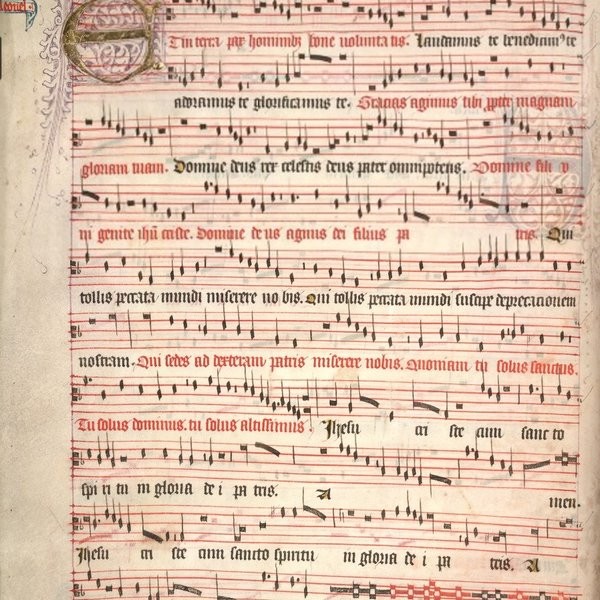 Et in terra pax hominibz bone uoluntatis. Laudamus te benedicimꝰ te
adoramus te glorificamus te. Gracias agimus tibi ꝓpter magnam
gloriam tuam. Domine deus rex celestis deus pater omnipotens. Domine fili v
ni genite ihu criste. Domine de us agnus dei filius pa tris. Qui
tollis peccata mundi miserere no bis. Qui tollis peccata mundi suscipe deprecationem
nostram. Qui sedes ad dexteram patris miserere nobis. Quoniam tu solus sanctus.
Tu solus dominus. tu solus altissimus. Jhesu cri ste cum sanc to
spi ri tu in gloria de i pa tris. A men.
Jhesu cri ste cum sancto spiritu in gloria de i pa tris. A